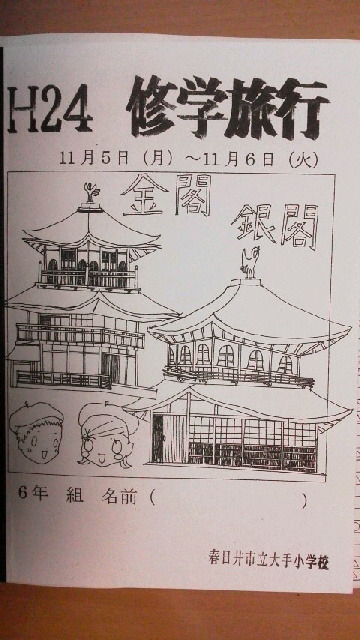 H24 修学旅行
11月5日（月）～11月6日（火）
金閣
銀閣
6年 組 名前（ ）
春日井市立大手小学校